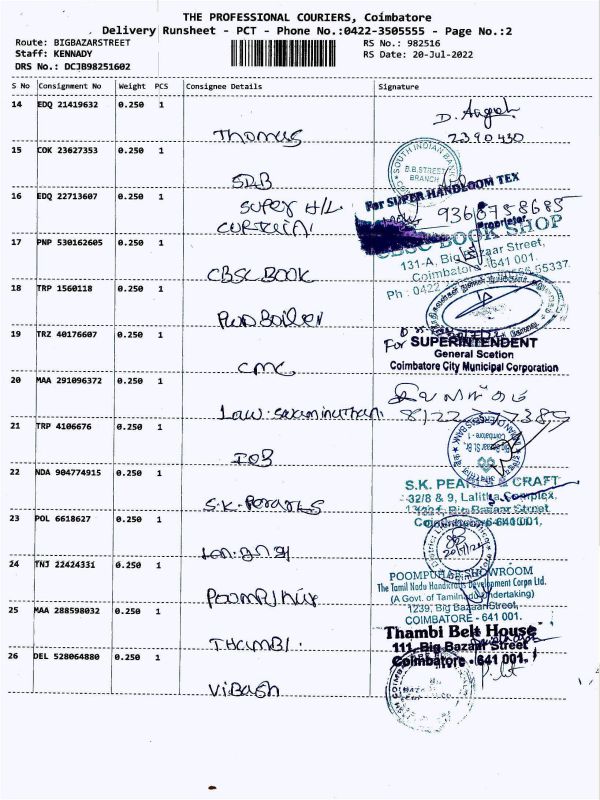 THE PROFESSIONAL COURIERS, Coimbatore
Delivery Runsheet - PCT - Phone No.:0422-3505555 - Page No.:2
Route: BIGBAZARSTREET
Staff: KENNADY
DRS No.: DCJB98251602
RS No.: 982516
RS Date: 20-Jul-2022
S No Consignment No Weight PCS Consignee Details Signature
14 EDQ 21419632 0.250 1
Thomas
2390430
15 COK 23627353 0.250 1
SIB
SOUTH INDIAN BANK
B.B.STREET
BRANCH
16 EDQ 22713607 0.250 1
Super H/L
For SUPER HANDLOOM TEX
9360758685
Proprietor
17 PNP 530162605 0.250 1
CBSC BOOK
CBSC BOOK SHOP
131-A, Big Bazaar Street,
Coimbatore - 641 001.
18 TRP 1560118 0.250 1
19 TRZ 40176607 0.250 1
CMC
For SUPERINTENDENT
General Scetion
Coimbatore City Municipal Corporation
20 MAA 291096372 0.250 1
Law. Swaminathan
21 TRP 4106676 0.250 1
IOB
22 NDA 904774915 0.250 1
S.K. Pearls
S.K. PEARLS & CRAFT
32/8 & 9, Lalitha Complex,
Big Bazaar Street
23 POL 6618627 0.250 1
24 TNJ 22424331 0.250 1
POOMPUHAR SHOWROOM
The Tamil Nadu Handicrafts Development Corpn Ltd.
(A Govt. of Tamilnadu Undertaking)
1239, Big Bazaar Street,
COIMBATORE - 641 001.
25 MAA 288598032 0.250 1
THAMBI.
Thambi Belt House
111, Big Bazaar Street
Coimbatore - 641 001.
26 DEL 528064880 0.250 1
Vibash